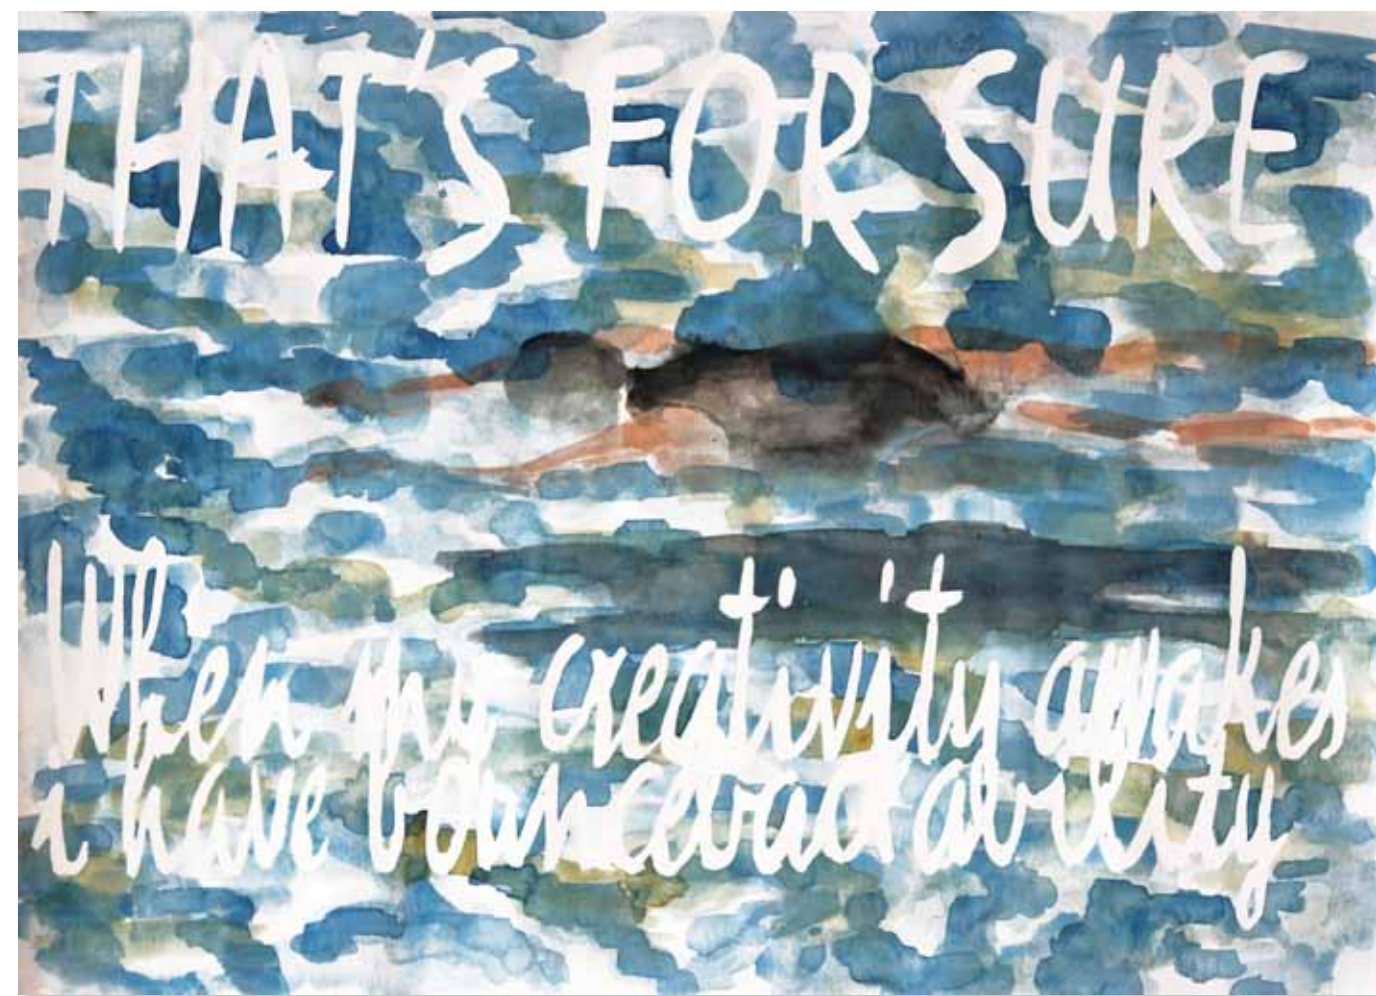 THAT'S FOR SURE
When my creativity awakes
i have bouncebackability